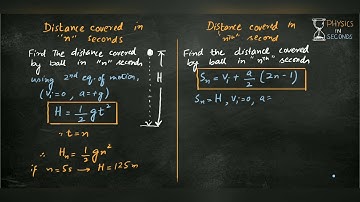 Distance covered in
"n" seconds
Find the distance covered
by ball in "n" seconds
using 2nd eq. of motion,
(Vi=0, a=+g)
H = 1/2 gt²
∵ t=n
∴ Hn = 1/2 gn²
if n=5s → H=125m
H
Distance covered in
nth second
Find the distance covered
by ball in "nth" seconds
Sn = Vi + a/2 (2n-1)
Sn=H, Vi=0, a=
PHYSICS
IN
SECONDS